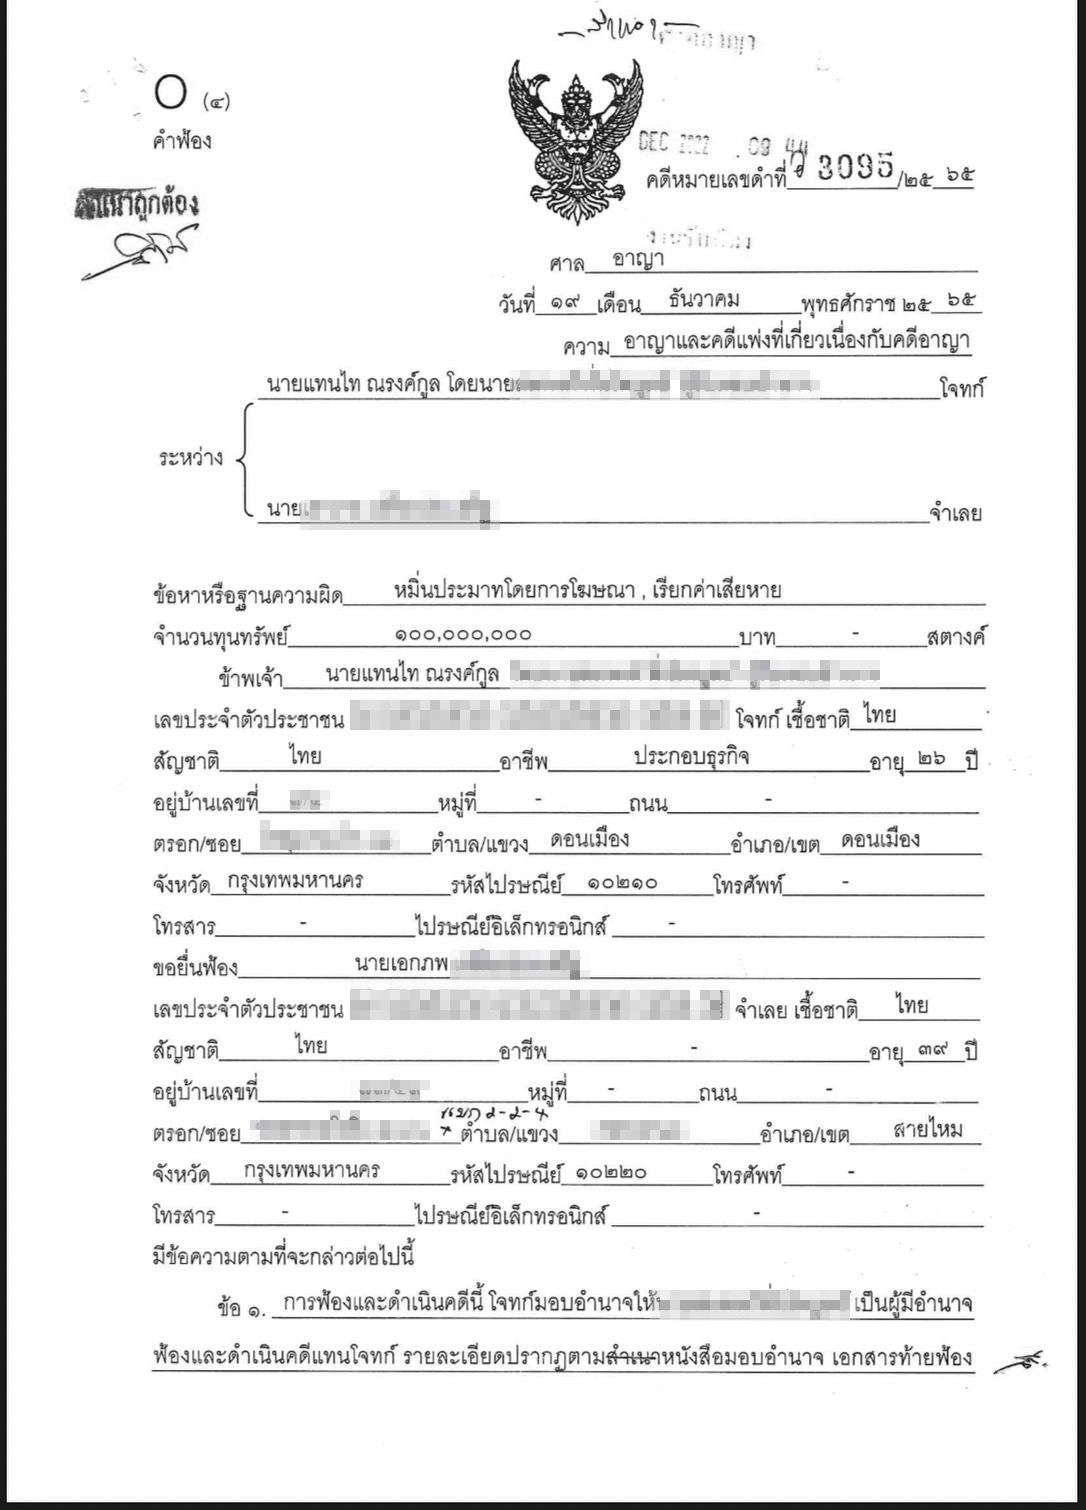 สำเนา
ศาลอาญา
O (๔)
คำฟ้อง
DEC 2022 09
สำเนาถูกต้อง
คดีหมายเลขดำที่ อ 3095/๒๕ ๖๕
งานรับฟ้อง
ศาล อาญา
วันที่ ๑๙ เดือน ธันวาคม พุทธศักราช ๒๕ ๖๕
ความ อาญาและคดีแพ่งที่เกี่ยวเนื่องกับคดีอาญา
นายแทนไท ณรงค์กูล โดยนาย โจทก์
ระหว่าง
นาย จำเลย
ข้อหาหรือฐานความผิด หมิ่นประมาทโดยการโฆษณา , เรียกค่าเสียหาย
จำนวนทุนทรัพย์ ๑๐๐,๐๐๐,๐๐๐ บาท - สตางค์
ข้าพเจ้า นายแทนไท ณรงค์กูล
เลขประจำตัวประชาชน โจทก์ เชื้อชาติ ไทย
สัญชาติ ไทย อาชีพ ประกอบธุรกิจ อายุ ๒๖ ปี
อยู่บ้านเลขที่ หมู่ที่ - ถนน -
ตรอก/ซอย ตำบล/แขวง ดอนเมือง อำเภอ/เขต ดอนเมือง
จังหวัด กรุงเทพมหานคร รหัสไปรษณีย์ ๑๐๒๑๐ โทรศัพท์ -
โทรสาร - ไปรษณีย์อิเล็กทรอนิกส์ -
ขอยื่นฟ้อง นายเอกภพ
เลขประจำตัวประชาชน จำเลย เชื้อชาติ ไทย
สัญชาติ ไทย อาชีพ - อายุ ๓๙ ปี
อยู่บ้านเลขที่ หมู่ที่ - ถนน -
แยก ๨-๨-๔
ตรอก/ซอย ตำบล/แขวง อำเภอ/เขต สายไหม
จังหวัด กรุงเทพมหานคร รหัสไปรษณีย์ ๑๐๒๒๐ โทรศัพท์ -
โทรสาร - ไปรษณีย์อิเล็กทรอนิกส์ -
มีข้อความตามที่จะกล่าวต่อไปนี้
ข้อ ๑. การฟ้องและดำเนินคดีนี้ โจทก์มอบอำนาจให้ เป็นผู้มีอำนาจ
ฟ้องและดำเนินคดีแทนโจทก์ รายละเอียดปรากฏตามสำเนาหนังสือมอบอำนาจ เอกสารท้ายฟ้อง